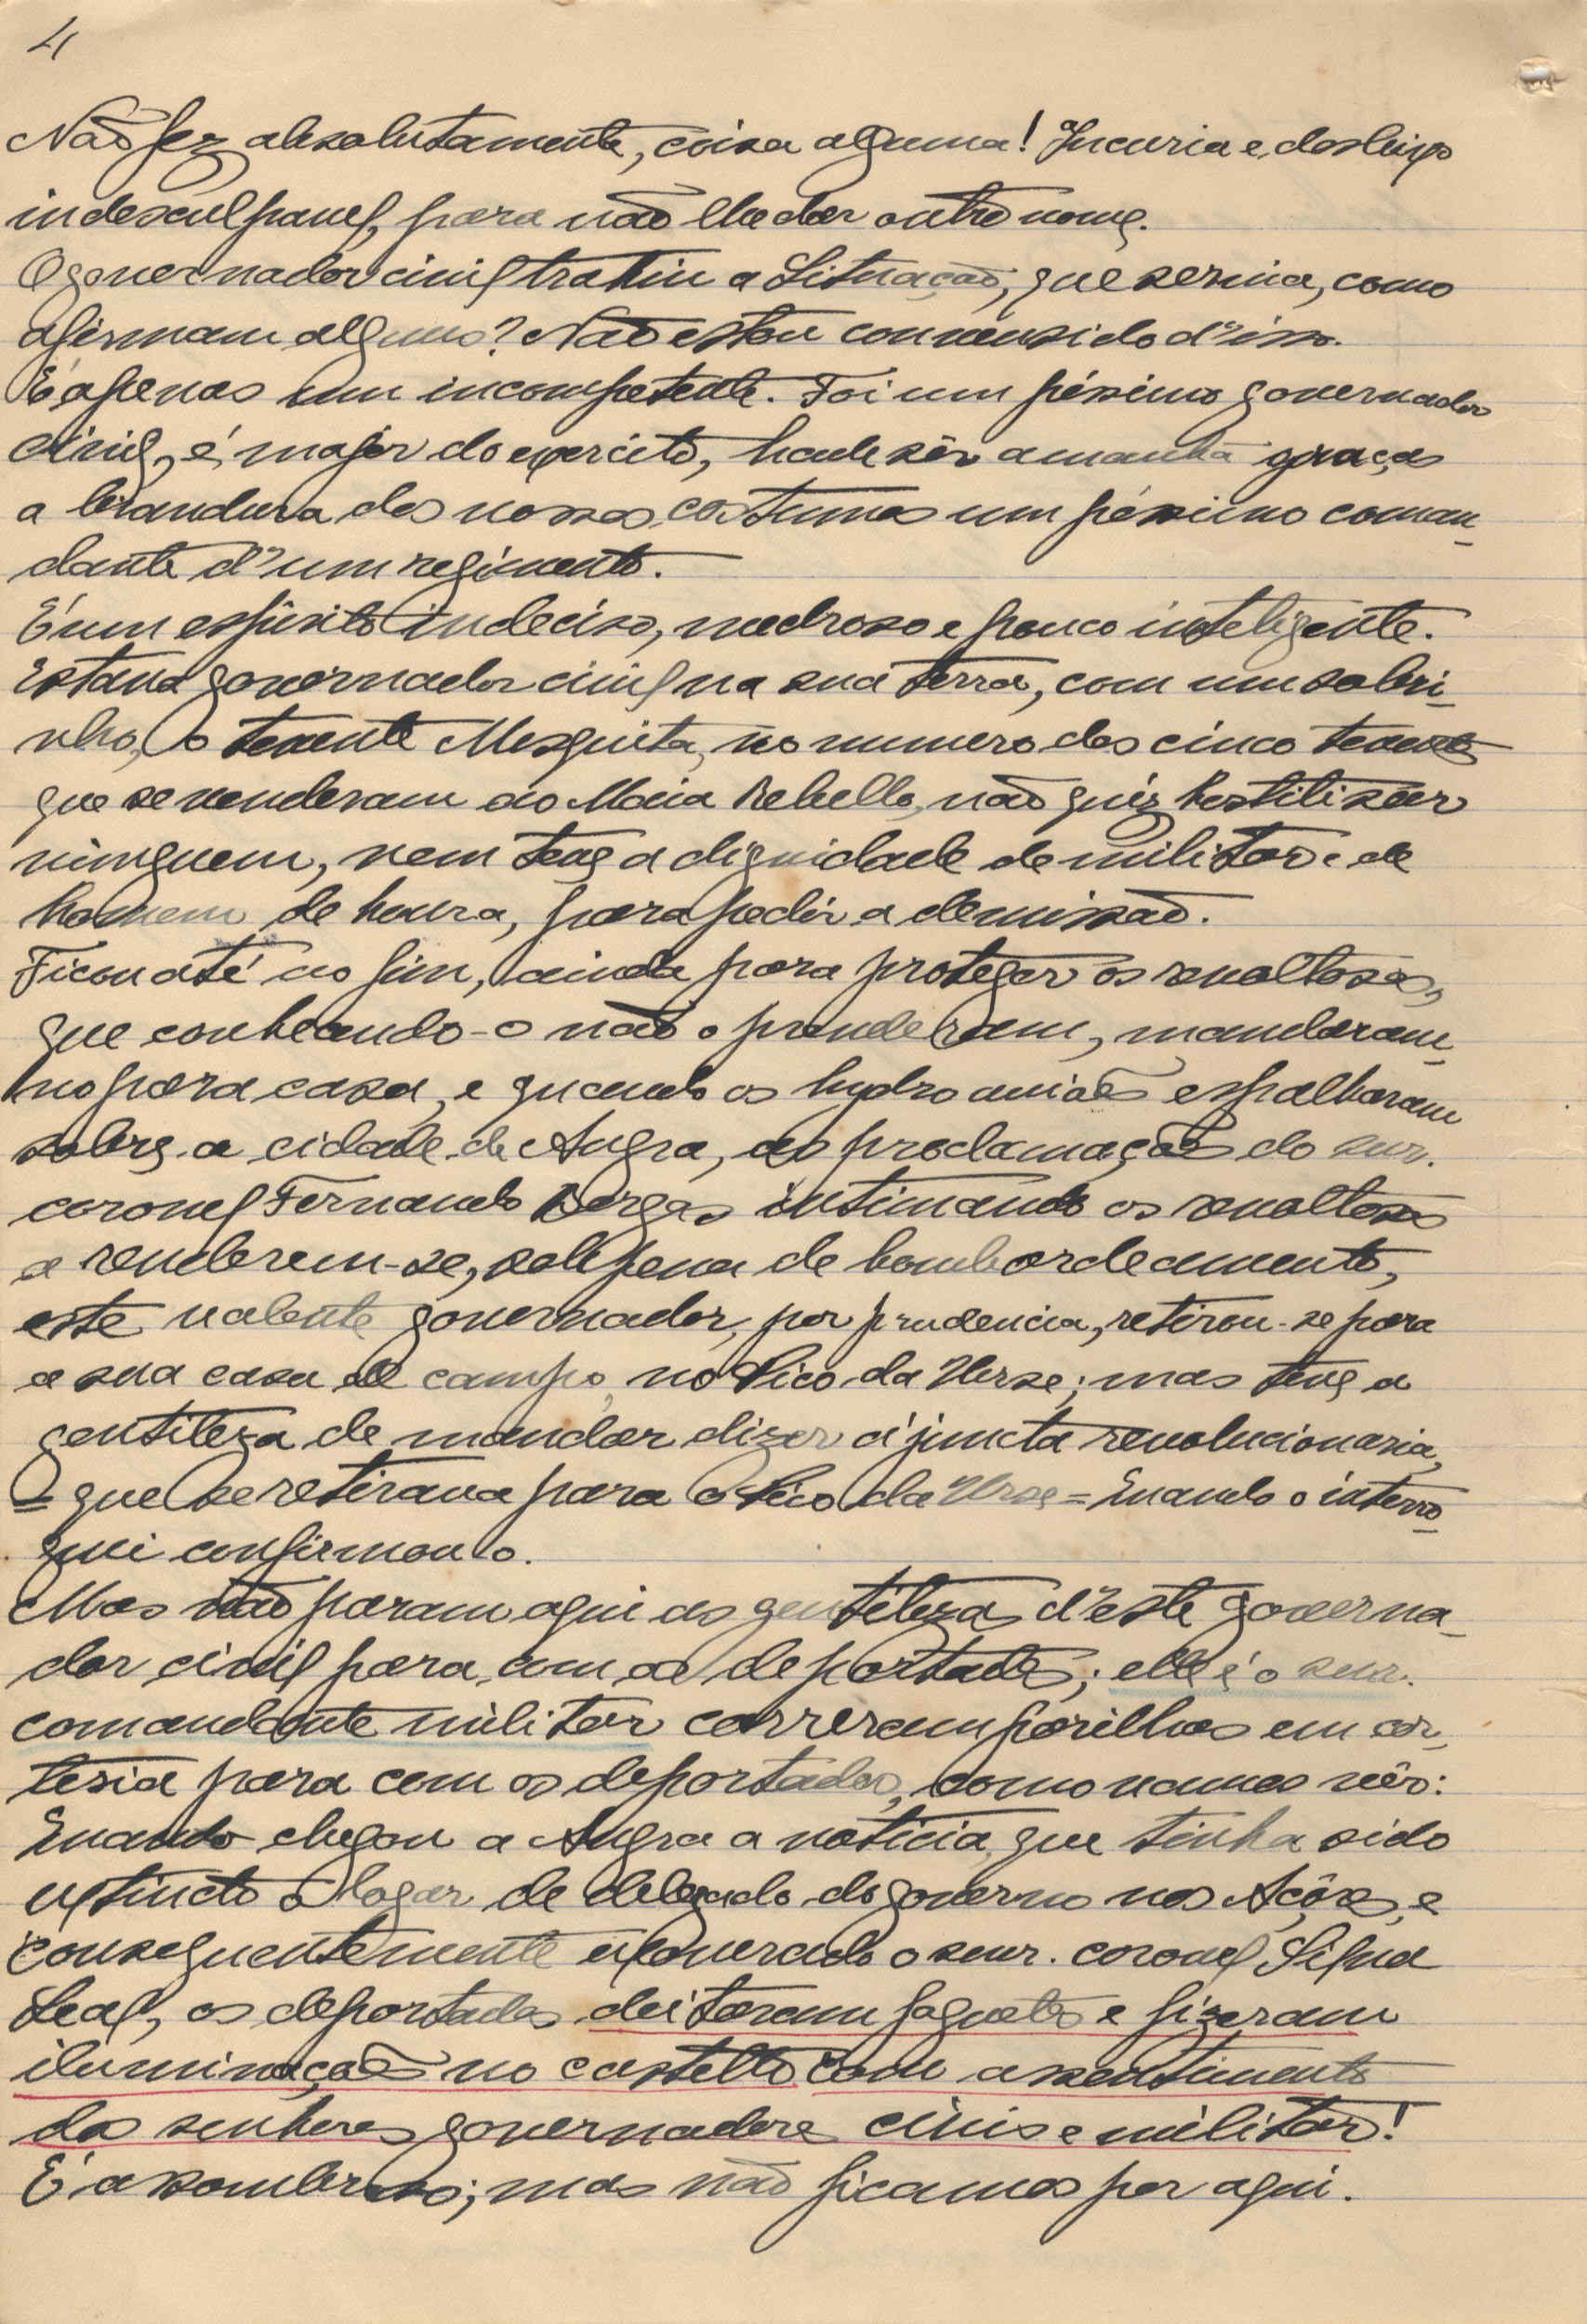 4
Não fez absolutamente, coisa alguma! Incuria e desleixo
indesculpavel, para não lhe dar outro nome.
O governador civil trahiu a Situação, que servia, como
afirmam alguns? Não estou convensido d'isso.
É apenas um incompetente. Foi um péssimo governador
civil, é major do exercito, hade sêr amanhã graças
a brandura dos nossos costumes um péssimo coman-
dante d'um regimento.
É um espirito indeciso, medroso e pouco inteligente.
Estava governador civil na sua terra, com um sobri-
nho, o tenente Mesquita, no numero dos cinco tenentes
que se venderam ao Maia Rebello, não quiz hostilisar
ninguem, nem teve a dignidade de militar e de
homem de honra, para pedir a demissão.
Ficou até ao fim, ainda para proteger os revoltosos,
que conhecendo-o não o prenderam, mandaram-
no para casa, e quando os hydroaviões espalharam
sobre a cidade de Angra, as proclamações do snr.
coronel Fernando Borges intimando os revoltosos
a renderem-se, sob pena de bombardeamento,
este valente governador, por prudencia, retirou-se para
a sua casa de campo, no Pico da Urze; mas teve a
gentileza de mandar dizer á juncta revolucionaria,
= que se retirava para o Pico da Urze = Quando o interro-
guei confirmou-o.
Mas não param aqui as gentilezas d'este governa-
dor civil para com os deportados; elle e o snr.
comandante militar correram parilhas em cor-
tesia para com os deportados, como vamos vêr:
Quando chegou a Angra a noticia, que tinha sido
extincto o logar de delegado do governo nos Açôres, e
consequentemente exonerado o snr. coronel Silva
Leal, os deportados deitaram foguetes e fizeram
iluminações no castello com assentimento
dos senhores governadores civis e militar!
É assombroso; mas não ficamos por aqui.